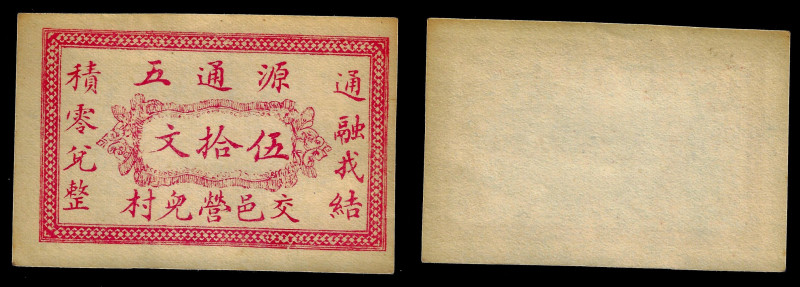 源通五
通融找結
伍拾文
積零兌整
交邑營兒村